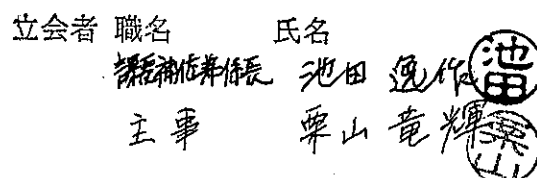 立会者 職名 氏名
課長補佐兼係長 池田 逸作 池田
主事 栗山 竜輝 栗山